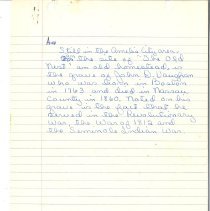 Still in the Amelia City area,
the site of "The Old
Nest" an old homestead, is
the grave of John D. Vaughn
who was born in Boston
in 1763 and died in Nassau
County in 1860. Noted on his
grave is the fact that he
served in the Revolutionary
War, the War of 1812 and
the Seminole Indian War.